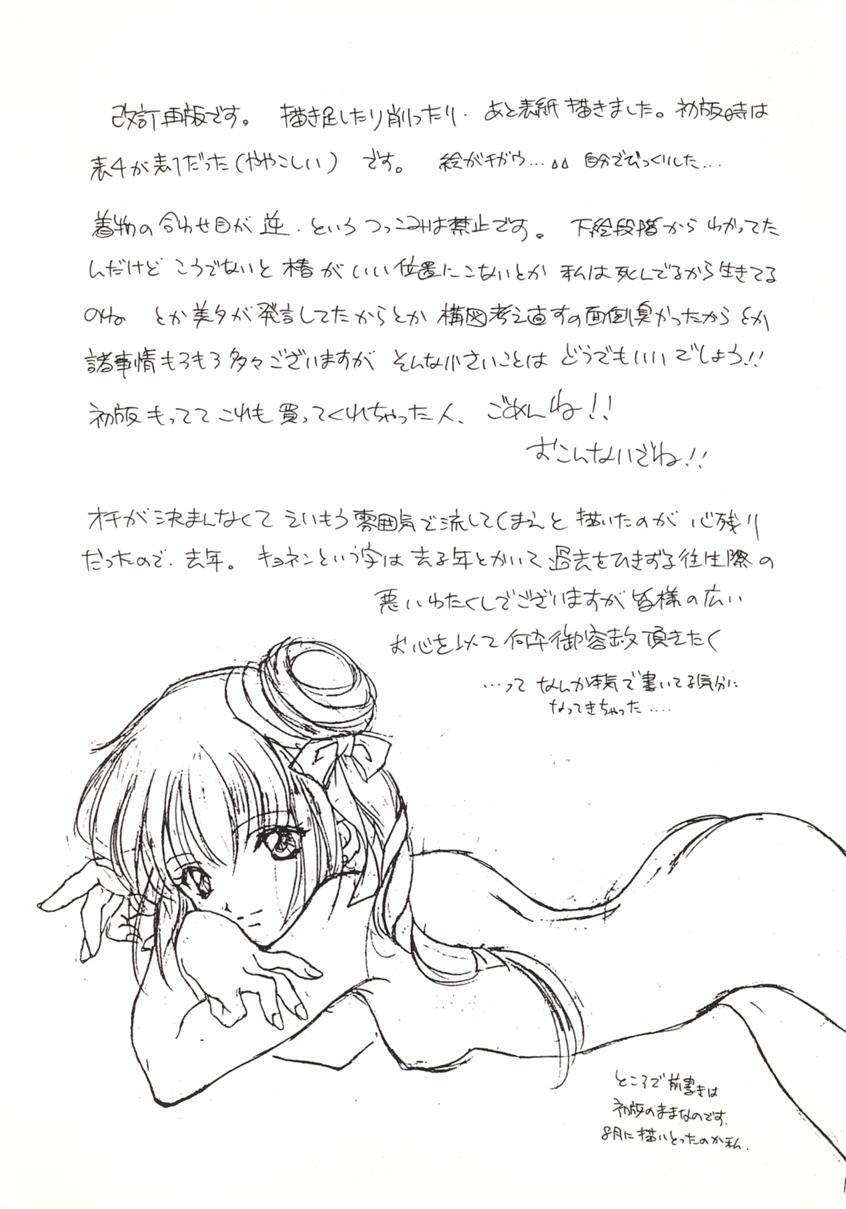 改訂再版です。 描き足したり削ったり・ あと表紙描きました。初版時は
表4が表1だった(ややこしい) です。 絵がチガウ… 自分でびっくりした…
着物の合わせ目が 逆・というつっこみは禁止です。 下絵段階からわかってた
んだけど こうでないと椿がいい位置にこないとか 私は死んでるから生きてる
のね とか美夕が発言してたからとか 構図考え直すの面倒臭かったからとか
諸事情もろもろ多々ございますが そんな小さいことは どうでもいいでしょう!!
初版もっててこれも買ってくれちゃった人、ごめんね!!
おこんないでね!!
オチが決まんなくて えいもう雰囲気で流してしまえと描いたのが心残り
だったので・去年。 キョネンという字は去る年とかいて過去をひきずる往生際の
悪いわたくしでございますが皆様の広い
お心を以て何卒御容赦頂きたく
…って なんか本気で書いてる気分に
なってきちゃった….
ところで前書きは
初版のままなのです.
8月に描いとったのか私.
1